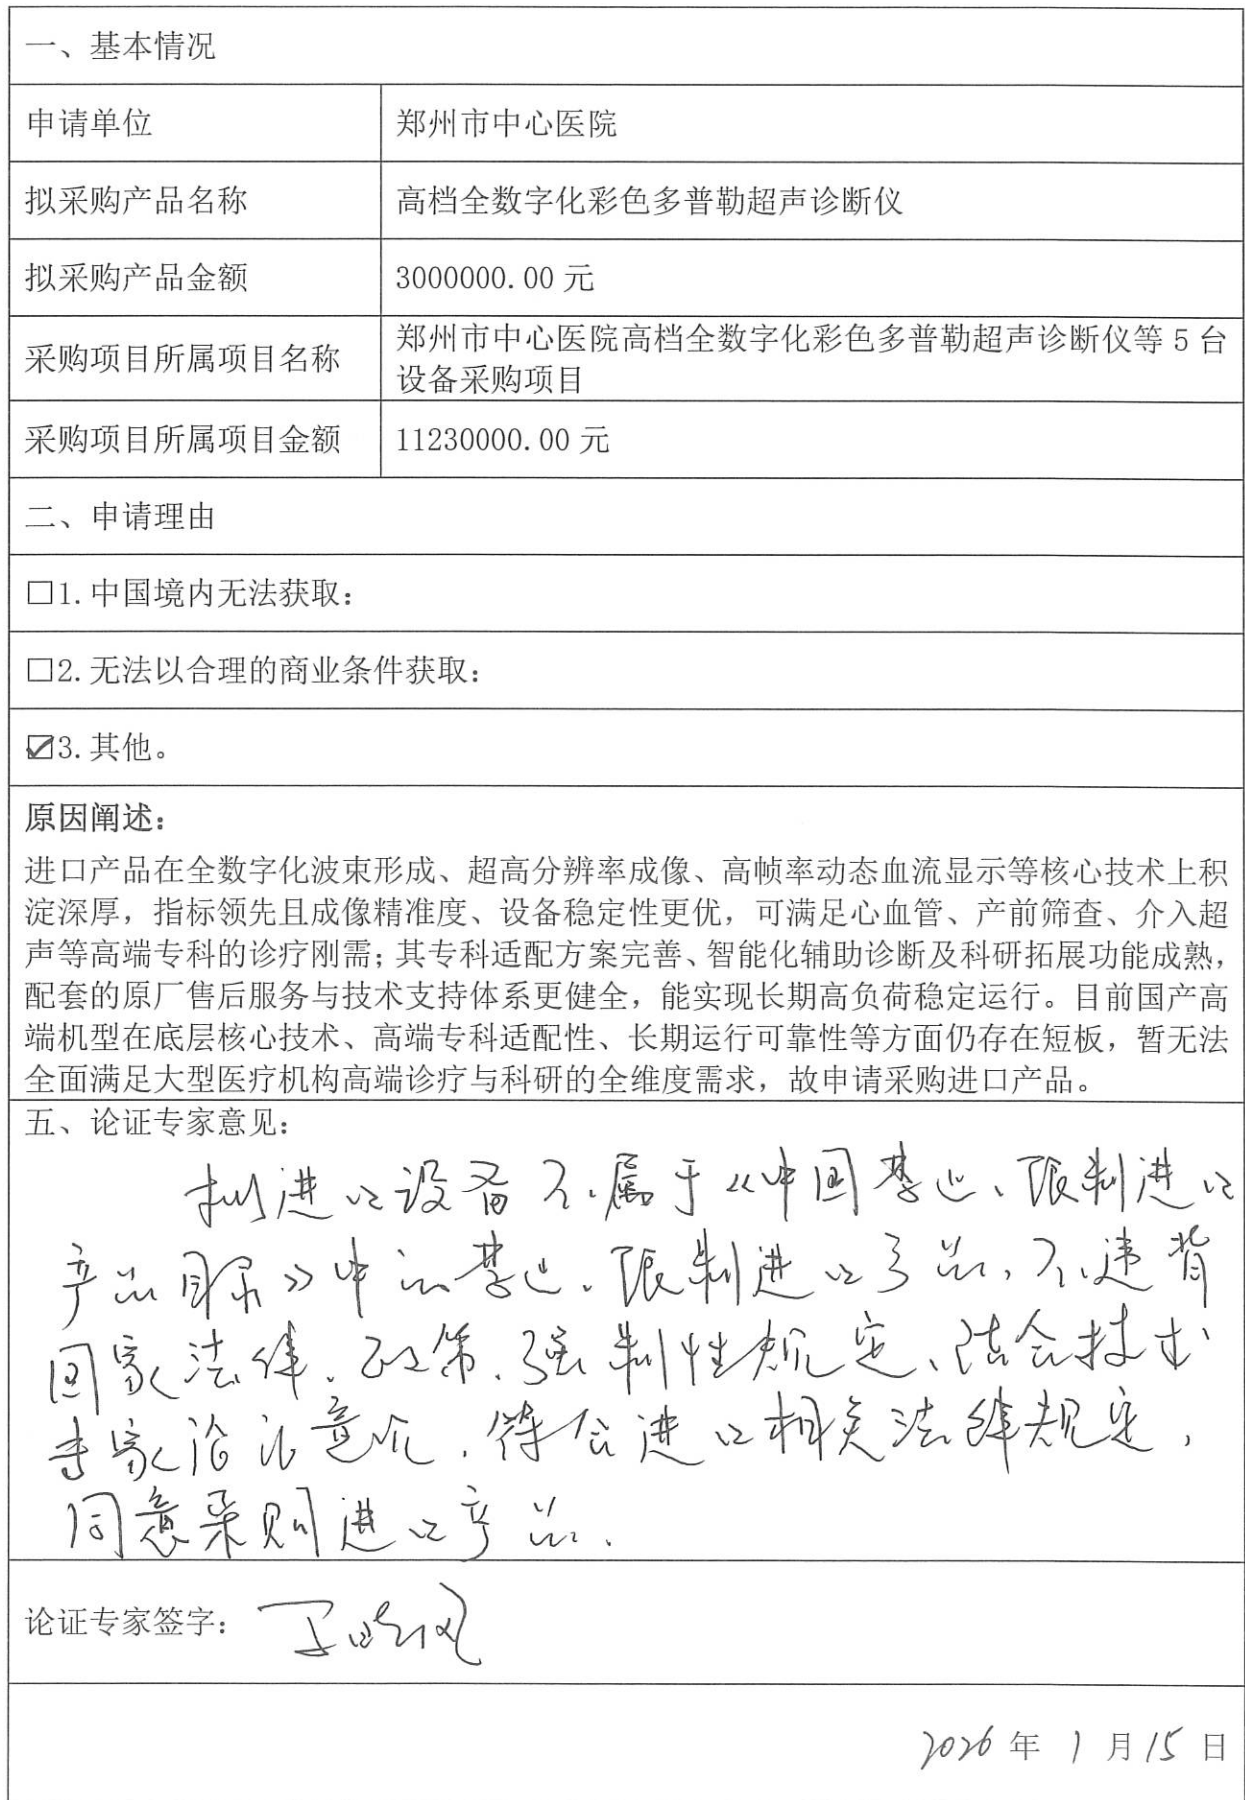 一、基本情况
申请单位
郑州市中心医院
拟采购产品名称
高档全数字化彩色多普勒超声诊断仪
拟采购产品金额
3000000.00 元
采购项目所属项目名称
郑州市中心医院高档全数字化彩色多普勒超声诊断仪等 5 台
设备采购项目
采购项目所属项目金额
11230000.00 元
二、申请理由
□1.中国境内无法获取：
□2.无法以合理的商业条件获取：
☑3.其他。
原因阐述：
进口产品在全数字化波束形成、超高分辨率成像、高帧率动态血流显示等核心技术上积
淀深厚，指标领先且成像精准度、设备稳定性更优，可满足心血管、产前筛查、介入超
声等高端专科的诊疗刚需；其专科适配方案完善、智能化辅助诊断及科研拓展功能成熟，
配套的原厂售后服务与技术支持体系更健全，能实现长期高负荷稳定运行。目前国产高
端机型在底层核心技术、高端专科适配性、长期运行可靠性等方面仍存在短板，暂无法
全面满足大型医疗机构高端诊疗与科研的全维度需求，故申请采购进口产品。
五、论证专家意见：
拟进口设备不属于《中国禁止、限制进口
产品目录》中的禁止、限制进口产品，不违背
国家法律、政策、强制性规定、结合技术
专家论证意见，符合进口相关法律规定，
同意采购进口产品.
论证专家签字：
2026 年 1 月 15 日